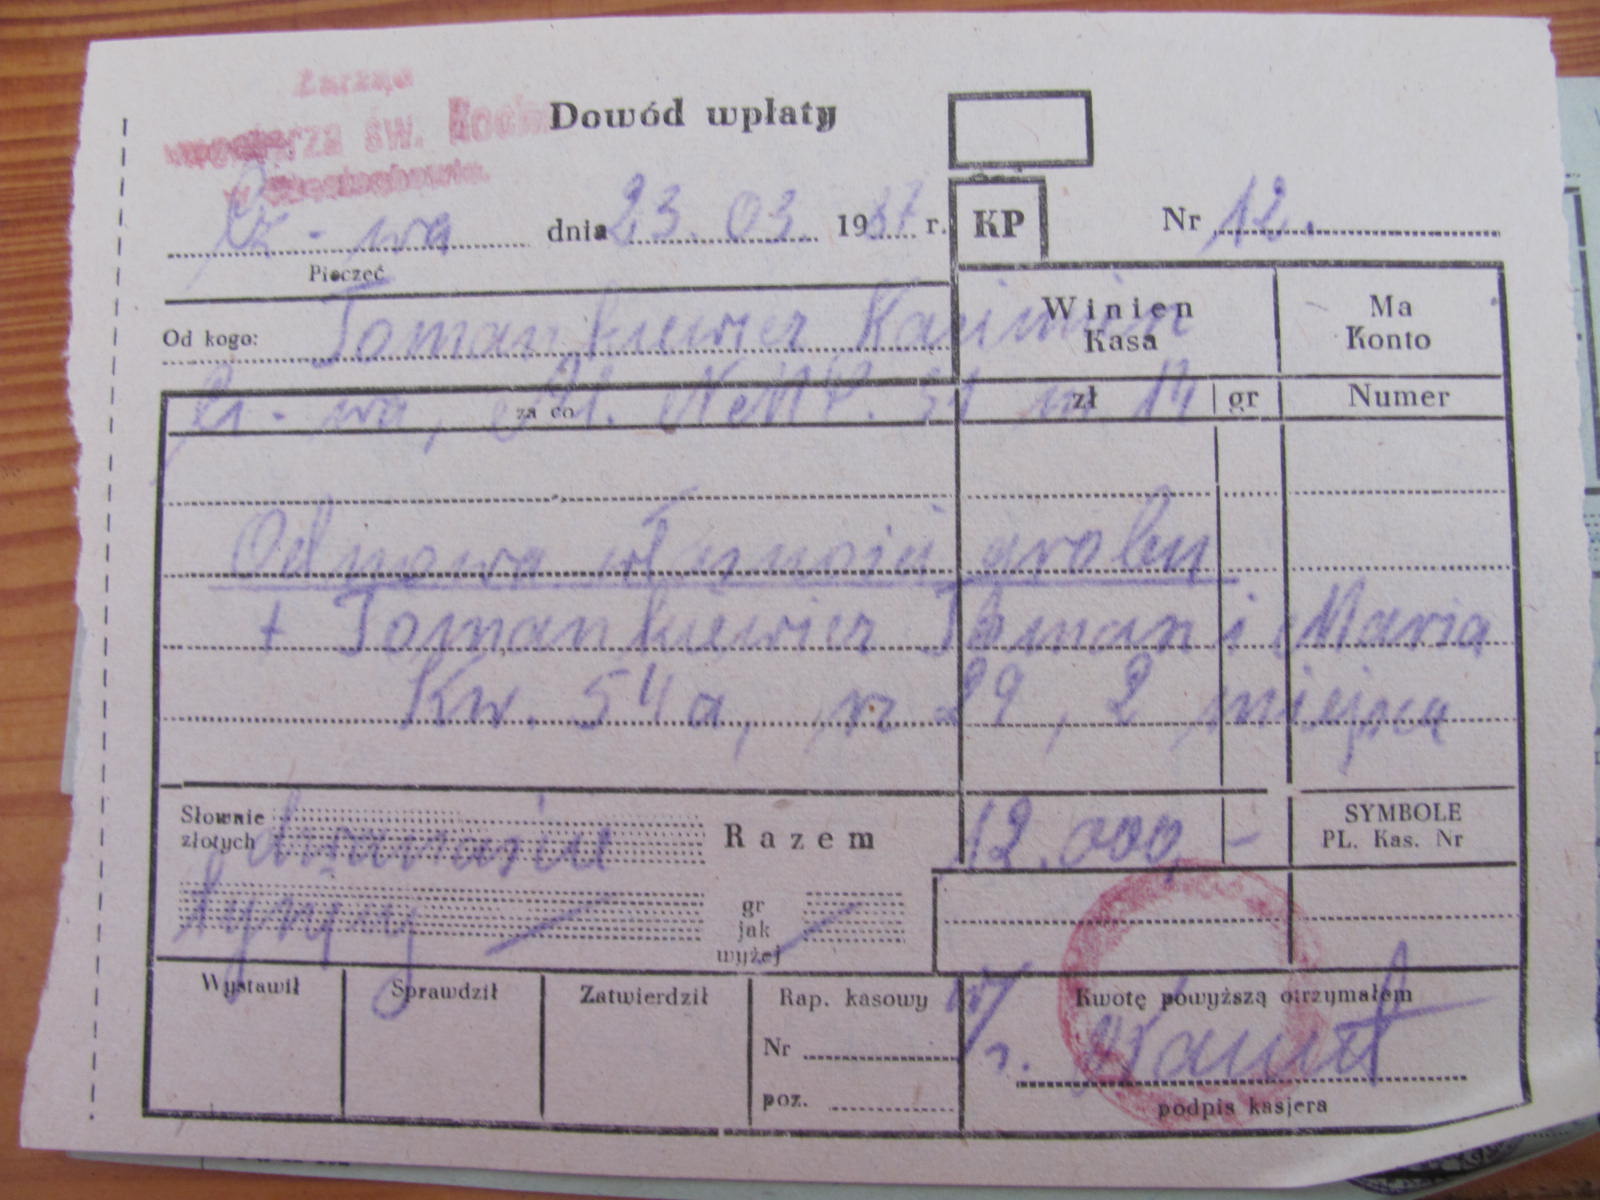 Zarząd
cmentarza św. Rocha
w Częstochowie
Dowód wpłaty
Cz-wa dnia 23.03. 1987 r.
KP
Nr 12.
Pieczęć
Od kogo: Tomankiewicz Kazimierz
Winien Kasa
Ma Konto
Cz-wa, Al. NMP. 51 m 14
za co
zł gr Numer
Odnowa własności grobu
+ Tomankiewicz Roman i Maria
Kw. 54a, r 29, 2 miejsca
Słownie złotych dwanaście
Razem 12.000,-
SYMBOLE
PL. Kas. Nr
tysięcy
gr jak wyżej
Wystawił Sprawdził Zatwierdził Rap. kasowy
Kwotę powyższą otrzymałem
Nr
poz.
podpis kasjera